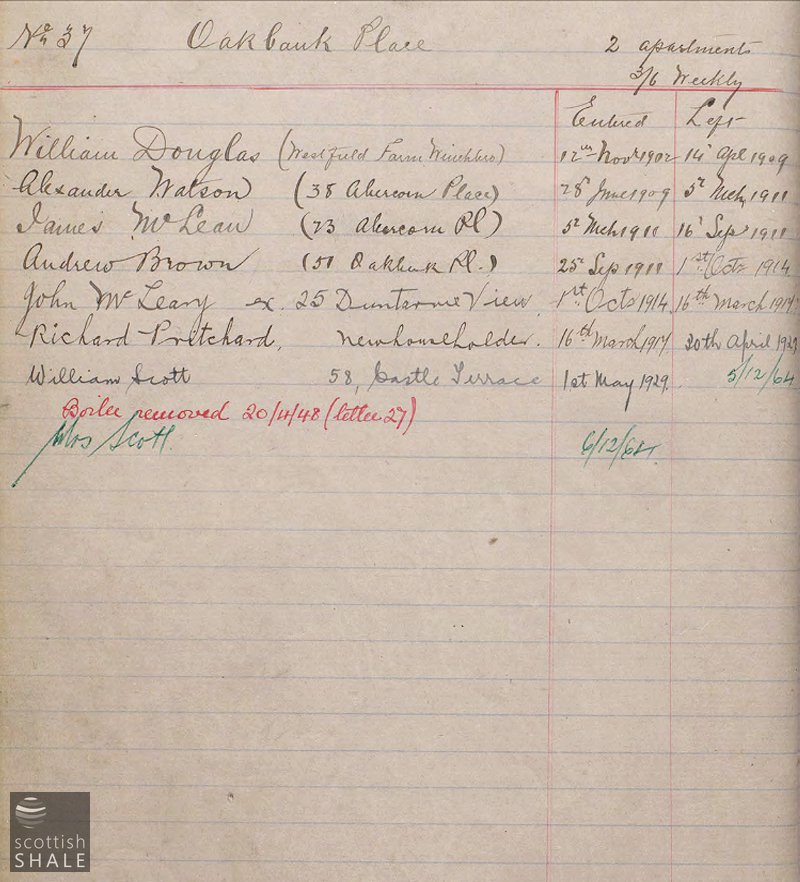 No 37 Oakbank Place 2 apartments
3/6 Weekly
Entered Left
William Douglas (Westfield Farm Winchbro) 12th Novr 1902 14 Apl 1909
Alexander Watson (38 Abercorn Place) 28 June 1909 5 Mch 1911
James McLean (23 Abercorn Pl) 5 Mch 1911 16 Sep 1911
Andrew Brown (51 Oakbank Pl.) 25 Sep 1911 1st Octr 1914
John McLeary ex. 25 Duntarvie View 1st Octr 1914 16th March 1917
Richard Pritchard, Newhouseholder. 16th March 1917 20th April 1929
William Scott 58, Castle Terrace 1st May 1929. 5/12/64
Boiler removed 20/4/48 (letter 27)
Mrs Scott. 6/12/64
scottish
SHALE